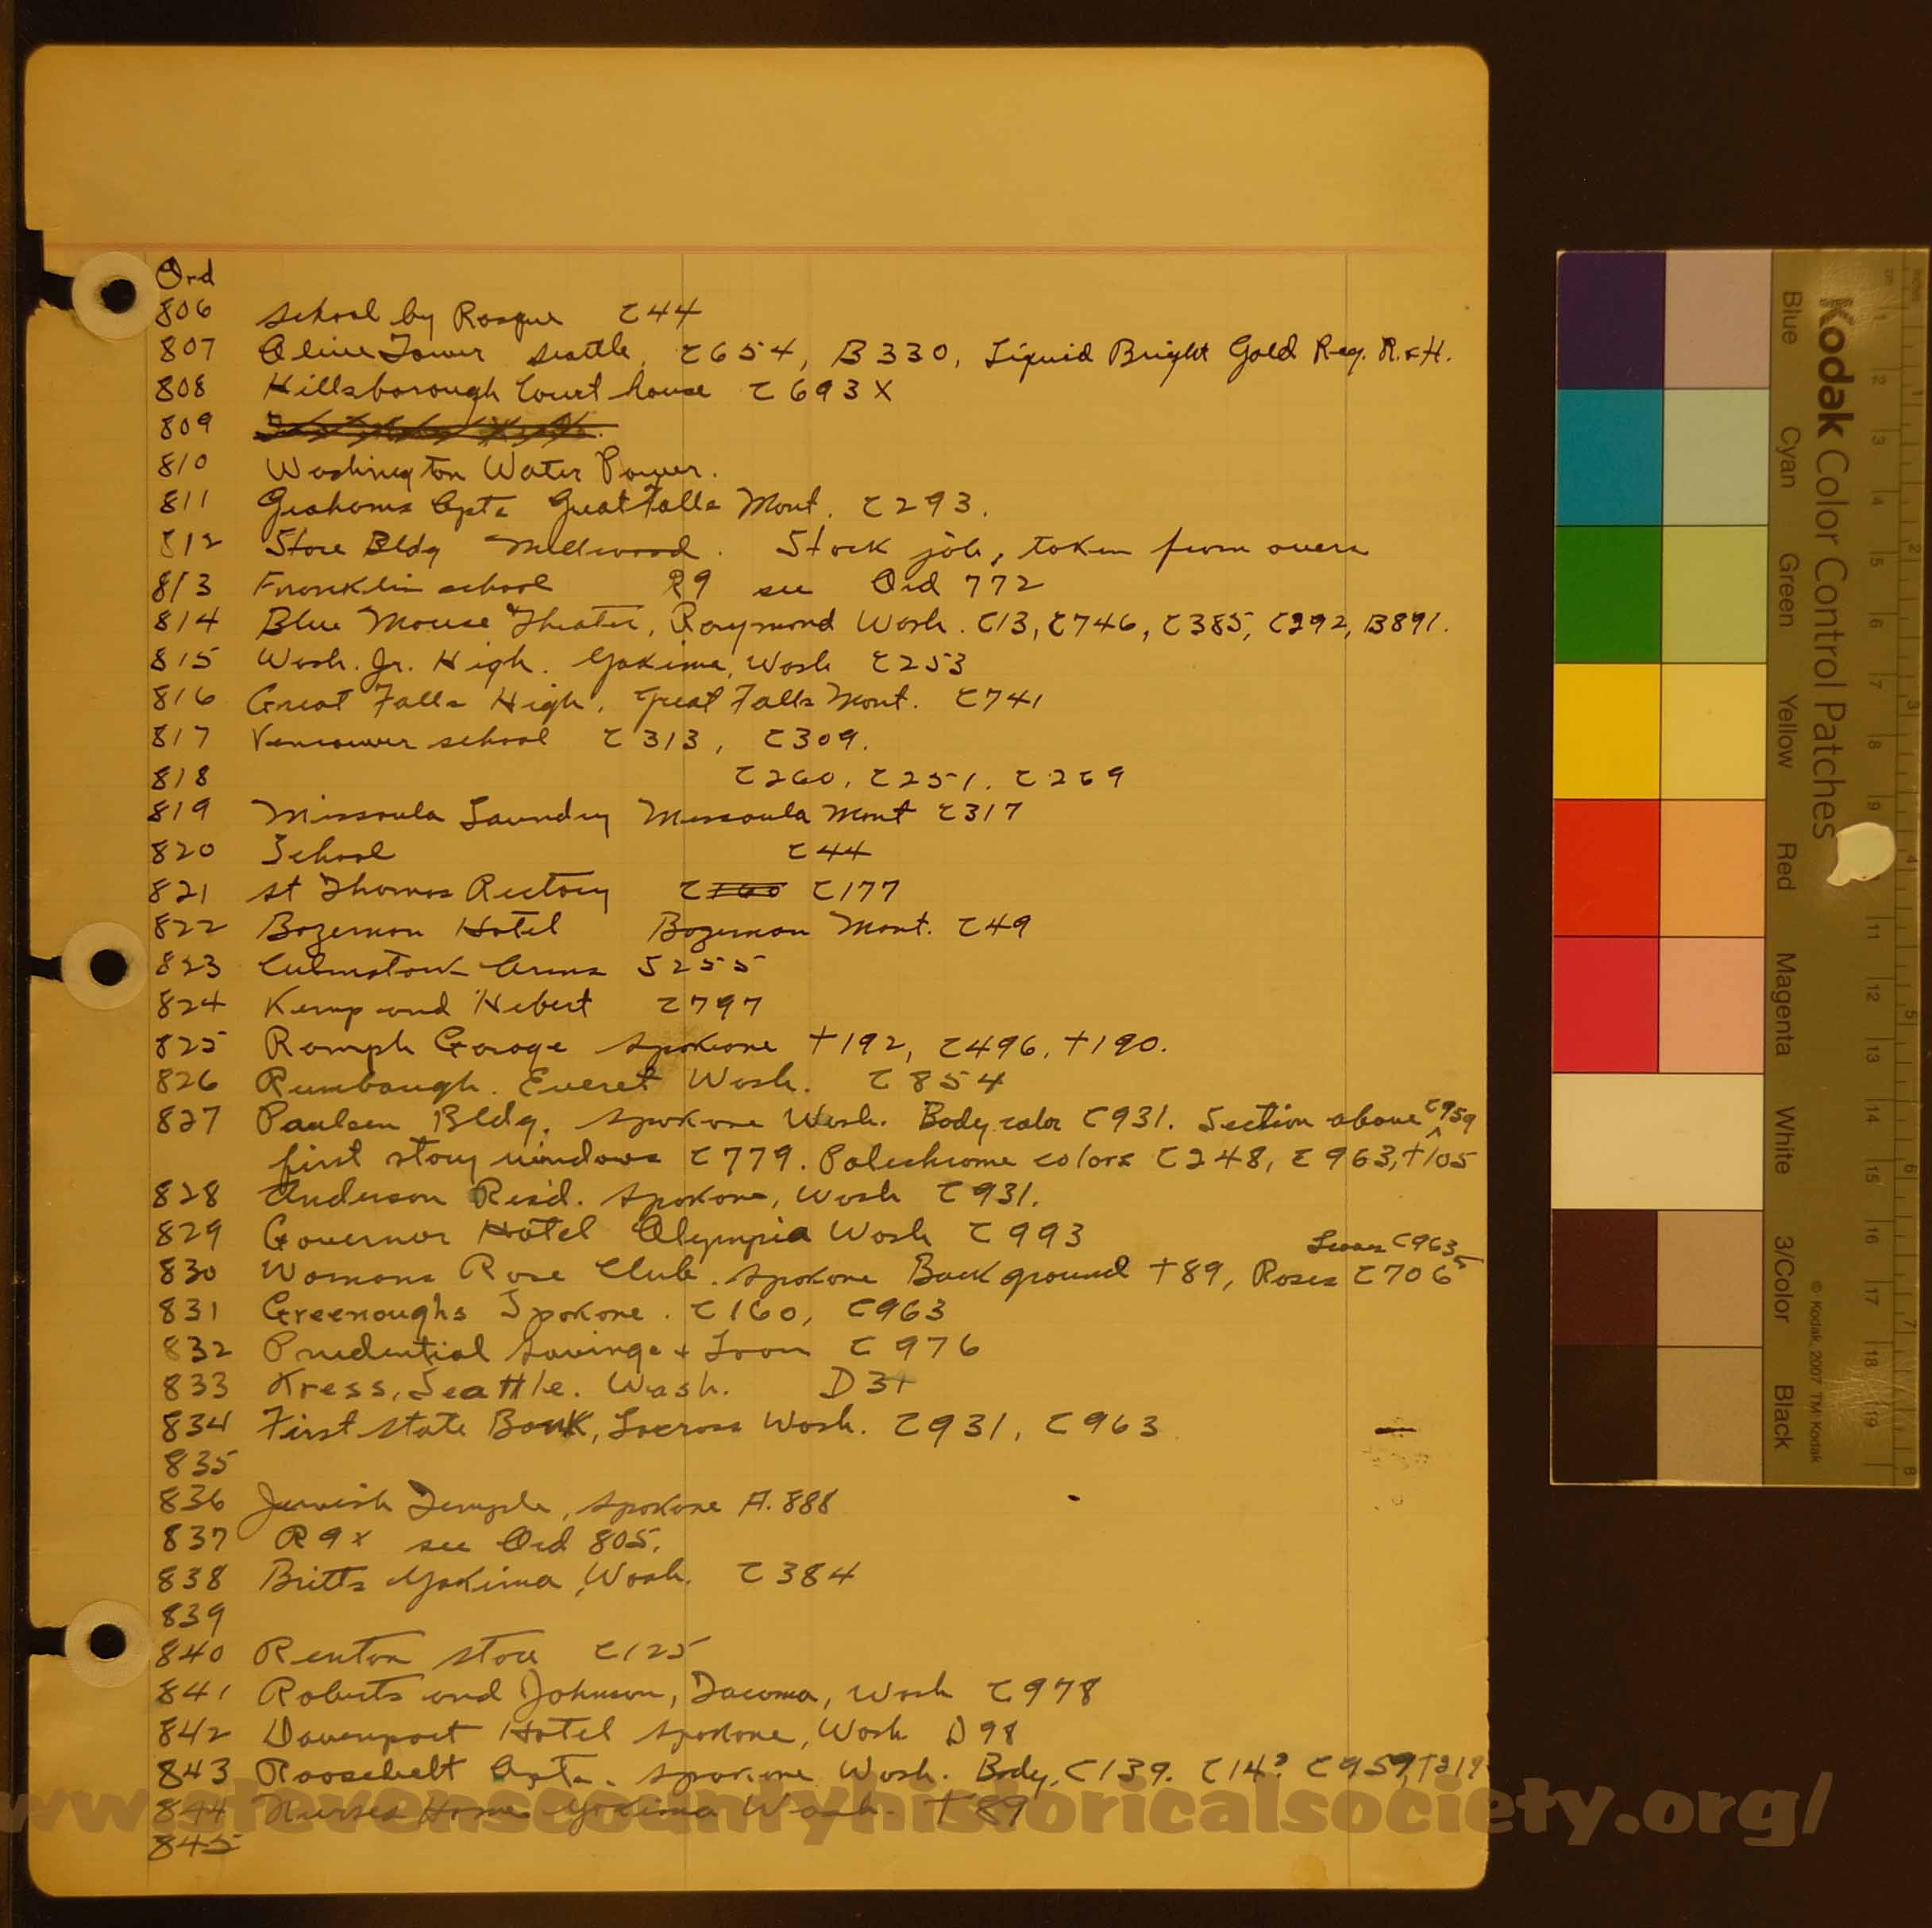 Ord
806 School by Rasque C44
807 Olive Tower Seattle, C654, B330, Liquid Bright Gold Reg. R.&H.
808 Hillsborough Court house C693X
809
810 Washington Water Power.
811 Grahams Apts Great Falls Mont. C293.
812 Store Bldg Millwood. Stock job, taken from overs
813 Franklin school R9 see Ord 772
814 Blue Mouse Theater, Raymond Wash. C13, C746, C385, C292, B891.
815 Wash. Jr. High. Yakima, Wash C253
816 Great Falls High, Great Falls Mont. C741
817 Vancouver school C313, C309.
818 C260, C251, C269
819 Missoula Laundry Missoula Mont C317
820 School C44
821 St Thomas Rectory C160 C177
822 Bozeman Hotel Bozeman Mont. C49
823 Culmstock Arms S255
824 Kemp and Hebert C797
825 Ramph Garage Spokane T192, C496, T190.
826 Rumbaugh. Everet Wash. C854
827 Paulsen Bldg. Spokane Wash. Body color C931. Section above C959
first story windows C779. Polichrome colors C248, C963, T105
828 Anderson Resid. Spokane, Wash C931.
829 Governor Hotel Olympia Wash C993
Leaves C963
830 Womans Rose Club. Spokane Background T89, Roses C706
831 Greenoughs Spokane. C160, C963
832 Prudential Savings + Loan C976
833 Kress, Seattle. Wash. D31
834 First State Bank, Lacross Wash. C931, C963
835
836 Jewish Temple, Spokane A.888
837 R9x see Ord 805.
838 Britts Yakima, Wash. C384
839
840 Renton store C125
841 Roberts and Johnson, Tacoma, Wash C978
842 Davenport Hotel Spokane, Wash D98
843 Roosebelt Apts. Spokane Wash. Body. C139. C959, T219
844 Nurses Home Yakima Wash. T89
845
www.stevenscountyhistoricalsociety.org/
Kodak Color Control Patches
Blue Cyan Green Yellow Red Magenta White 3/Color Black
© Kodak, 2007 TM: Kodak